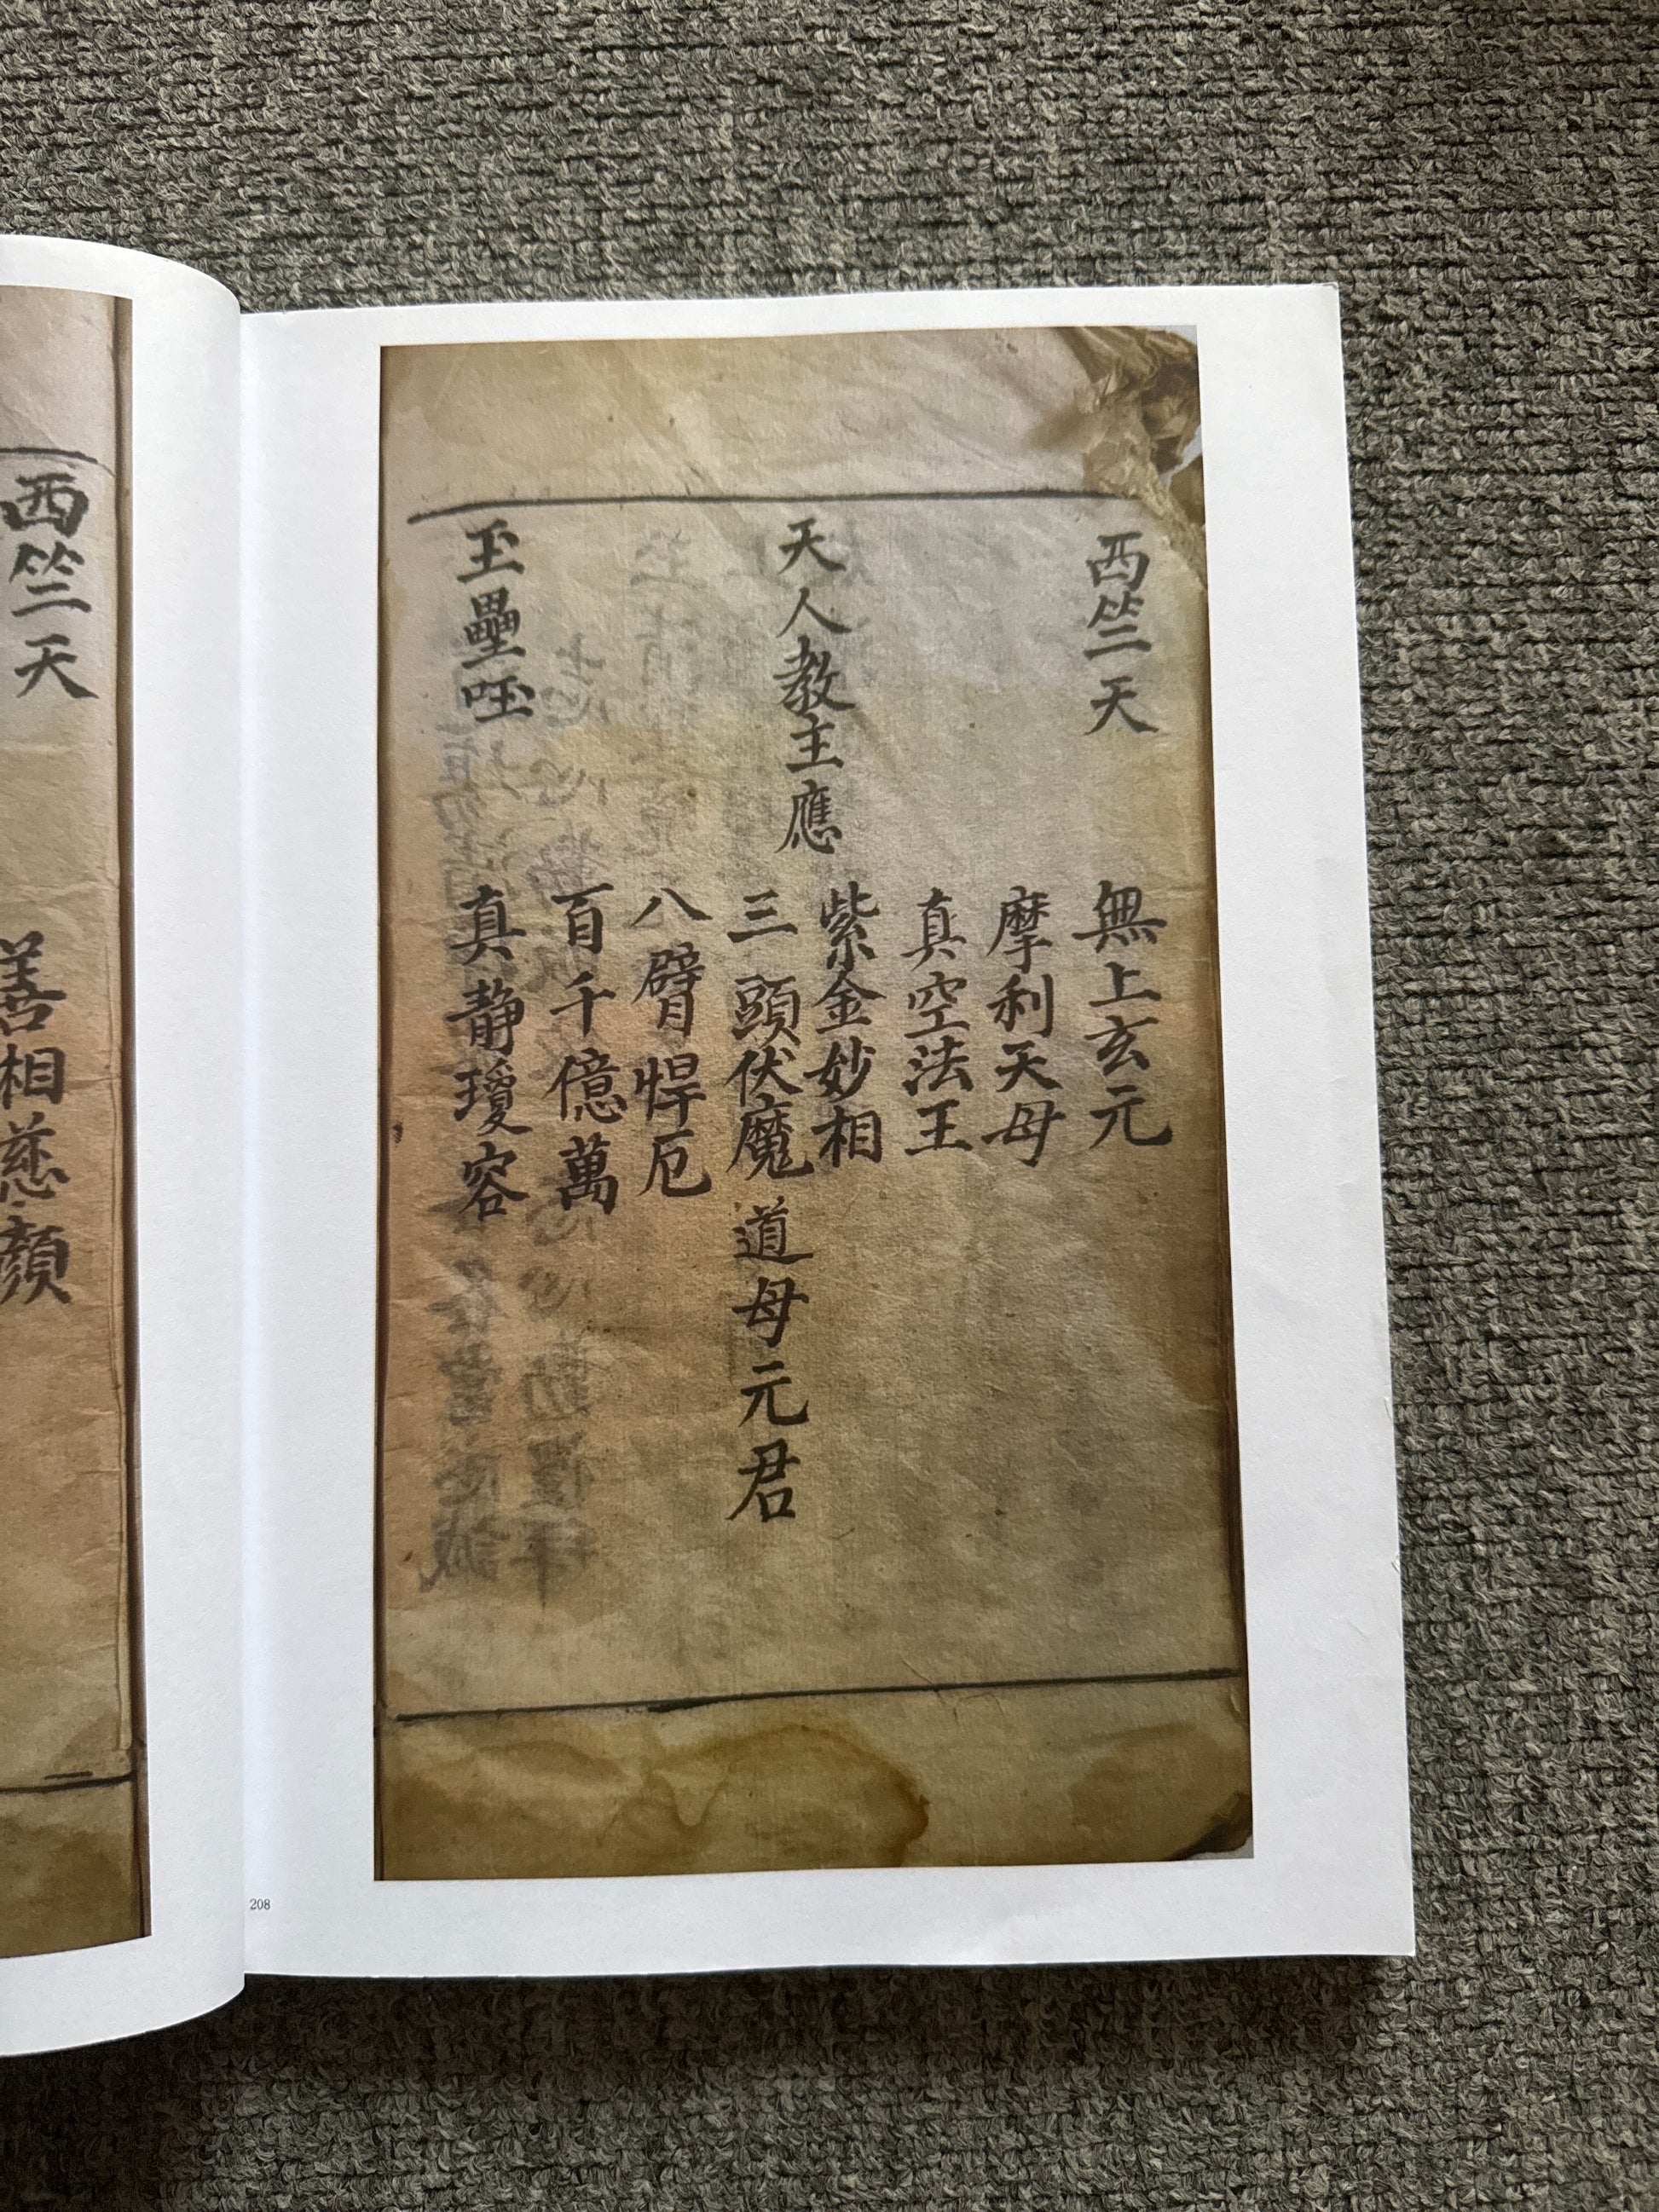 西竺天
無上玄元
摩利天母
真空法王
天人教主應
紫金妙相
三頭伏魔
道母元君
八臂悍厄
百千億萬
玉壘
真静瓊容
西竺天
善相慈顏
208